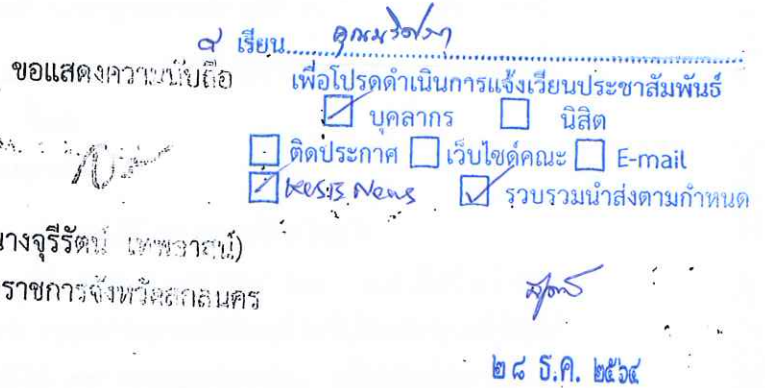 ๙ เรียน
ขอแสดงความนับถือ
เพื่อโปรดดำเนินการแจ้งเวียนประชาสัมพันธ์
บุคลากร นิสิต
ติดประกาศ เว็บไซด์คณะ E-mail
News รวบรวมนำส่งตามกำหนด
นางจุรีรัตน์ เทพอาสน์)
ราชการจังหวัดสกลนคร
๒๘ ธ.ค. ๒๕๖๔